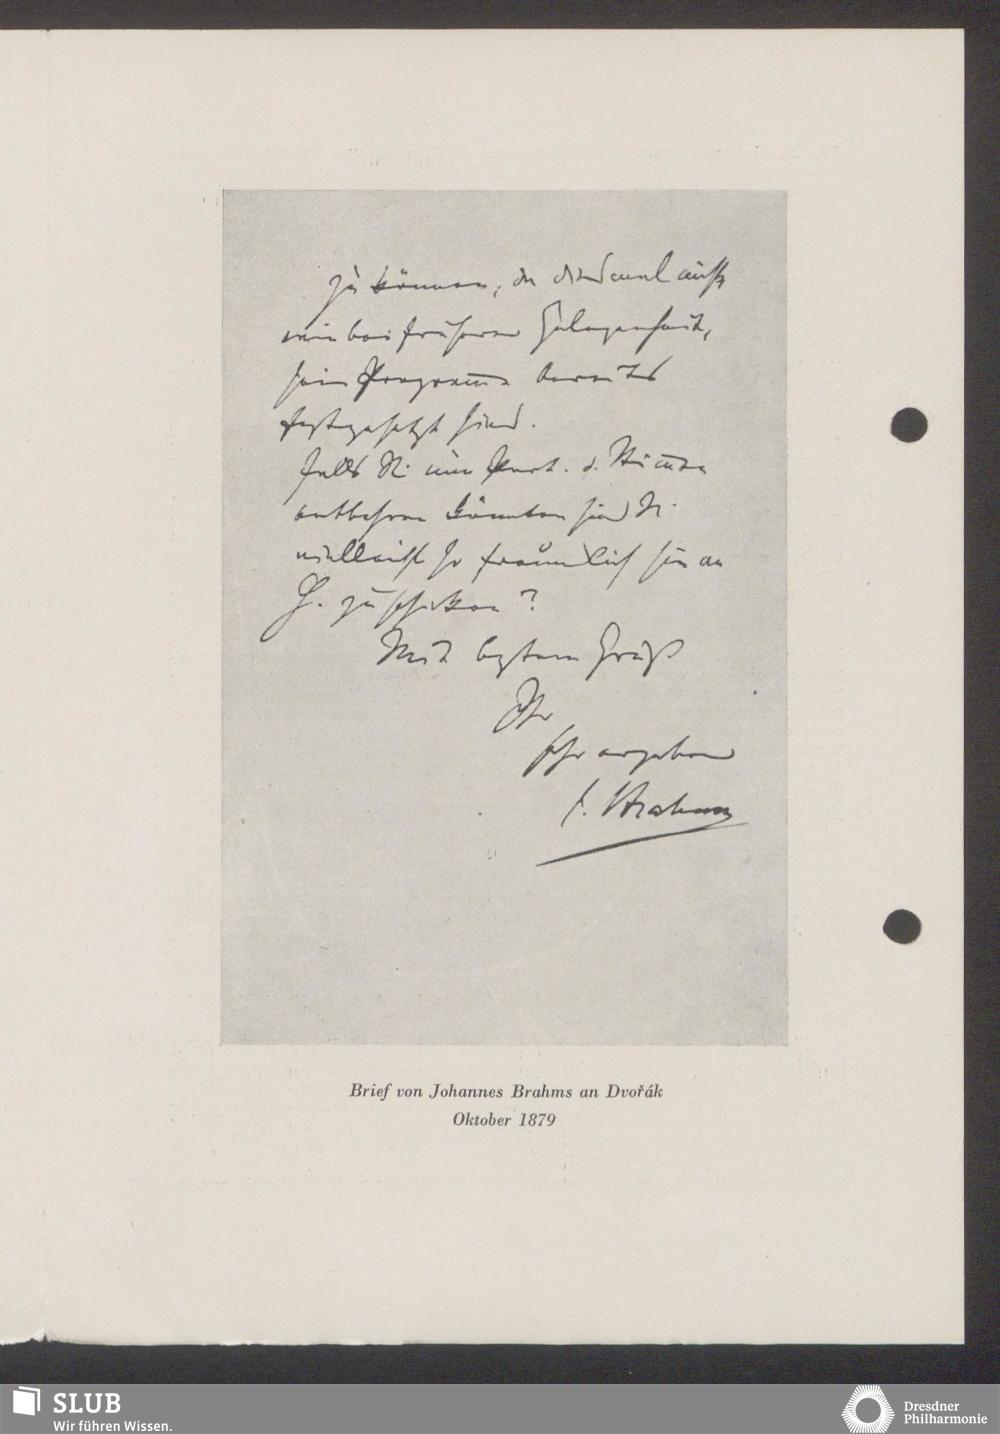 zu können, da diesmal nicht
wie bei früherer Gelegenheit,
sein Programm bereits
festgesetzt sind.
Falls Sie nun Part. u. Stimmen
entbehren könnten sind Sie
vielleicht so freundlich sie an
H. zu schicken?
Mit bestem Gruß
Ihr
sehr ergebener
J. Brahms
Brief von Johannes Brahms an Dvořák
Oktober 1879
SLUB
Wir führen Wissen.
Dresdner
Philharmonie